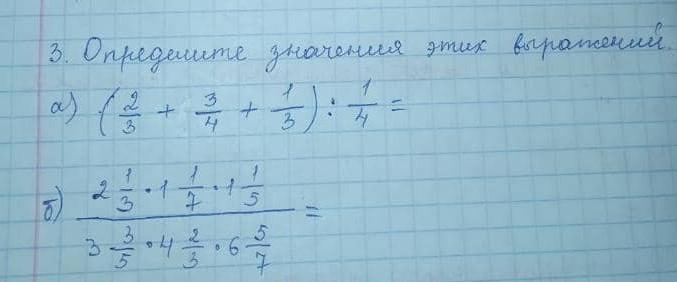 3. Определите значения этих выражений.
а) (2/3 + 3/4 + 1/3) : 1/4 =
б) (2 1/3 · 1 1/7 · 1 1/5) / (3 3/5 · 4 2/3 · 6 5/7) =